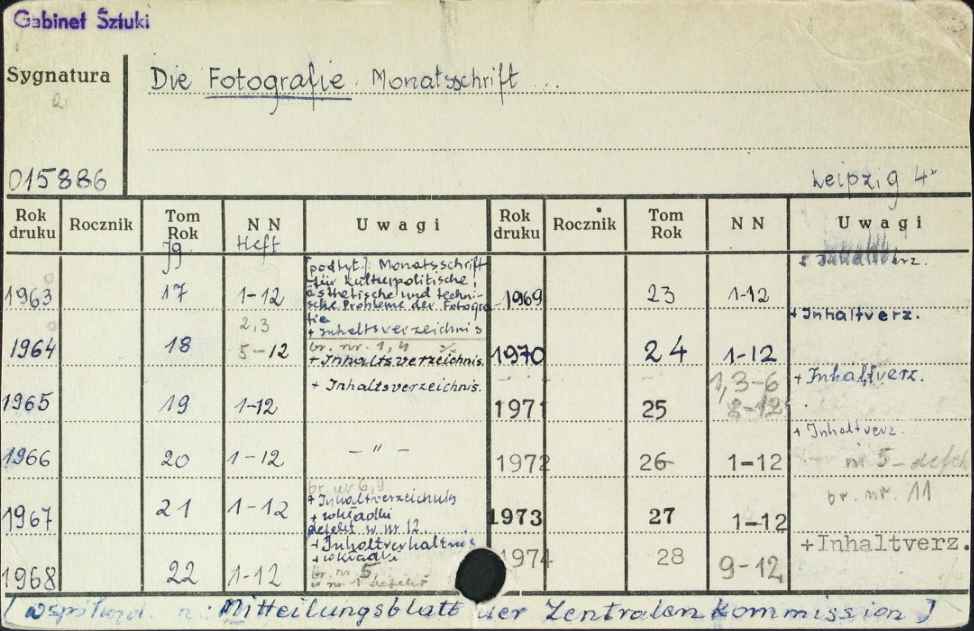 Gabinet Sztuki
Sygnatura
Die Fotografie. Monatsschrift ...
015886
Leipzig 4°
Rok druku Rocznik Tom Rok N N Uwagi Rok druku Rocznik Tom Rok N N Uwagi
Jg Heft
1963 17 1-12
[podtyt.]: Monatsschrift
für kulturpolitische,
ästhetische und techni-
sche Probleme der Fotogra-
fie
+ Inhaltsverzeichnis
1964 18 2,3
5-12
br. nr. 1, 4
+ Inhaltsverzeichnis.
1965 19 1-12 + Inhaltsverzeichnis.
1966 20 1-12 - " -
1967 21 1-12
br. nr 6, 9
+ Inhaltverzeichnis
+ wkładki
defekt w nr 12.
1968 22 1-12
+ wkładki
br. nr 5
w nr 1 defekt
1969 23 1-12
1970 24 1-12 + Inhaltverz.
1971 25 1, 3-6
8-12 + Inhaltverz.
1972 26 1-12 + Inhaltverz.
nr 5 - defekt
1973 27 1-12
br. nr. 11
1974 28 9-12 +Inhaltverz.
Mitteilungsblatt der Zentralen Kommission ]